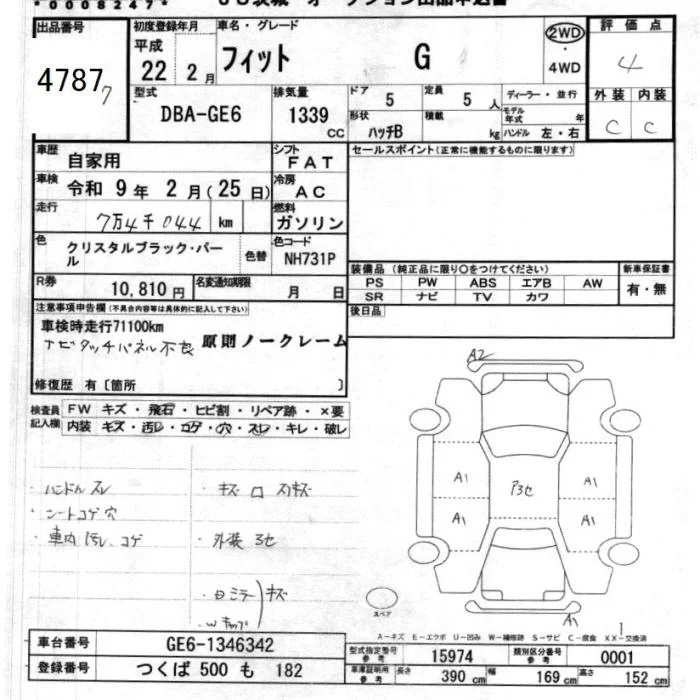 * 0 0 0 8 2 4 7 *
出品番号 初度登録年月 車名・グレード 2WD・4WD 評価点
47877 平成 22 2月 フィット G 4
型式 排気量 ドア 5 定員 5人 ディーラー・並行 外装 内装
DBA-GE6 1339 CC 形状 ハッチB 積載 kg モデル年式 年 ハンドル 左・右 C C
車歴 自家用 シフト FAT セールスポイント(正常に機能するものに限ります)
車検 令和 9年 2月(25日) 冷房 AC
走行 7万4千044 km 燃料 ガソリン
色 クリスタルブラック・パール 色替 色コード NH731P
装備品 (純正品に限り○をつけてください) 新車保証書
PS PW ABS エアB AW 有・無
SR ナビ TV カワ
R券 10,810円 名変通知期限 月 日
後日品
注意事項申告欄(不具合内容等は具体的に記入して下さい)
車検時走行71100km
ナビタッチパネル不良 原則ノークレーム
修復歴 有〔箇所 〕
検査員記入欄 FW キズ・飛石・ヒビ割・リペア跡・×要
内装 キズ・汚レ・コゲ・穴・スレ・キレ・破レ
A2
A1 A3セ A1
A1 A1
・ハンドルスレ ・キズ ロ スリキズ
・シートコゲ穴
・車内汚レ、コゲ ・外装 3セ
キズ
スペア A1
A-キズ E-エクボ U-凹み W-補修跡 S-サビ C-腐食 XX-交換済
車台番号 GE6-1346342
型式指定番号参考 15974 類別区分番号参考 0001
登録番号 つくば 500 も 182
車庫証明用参考 長さ 390 cm 幅 169 cm 高さ 152 cm